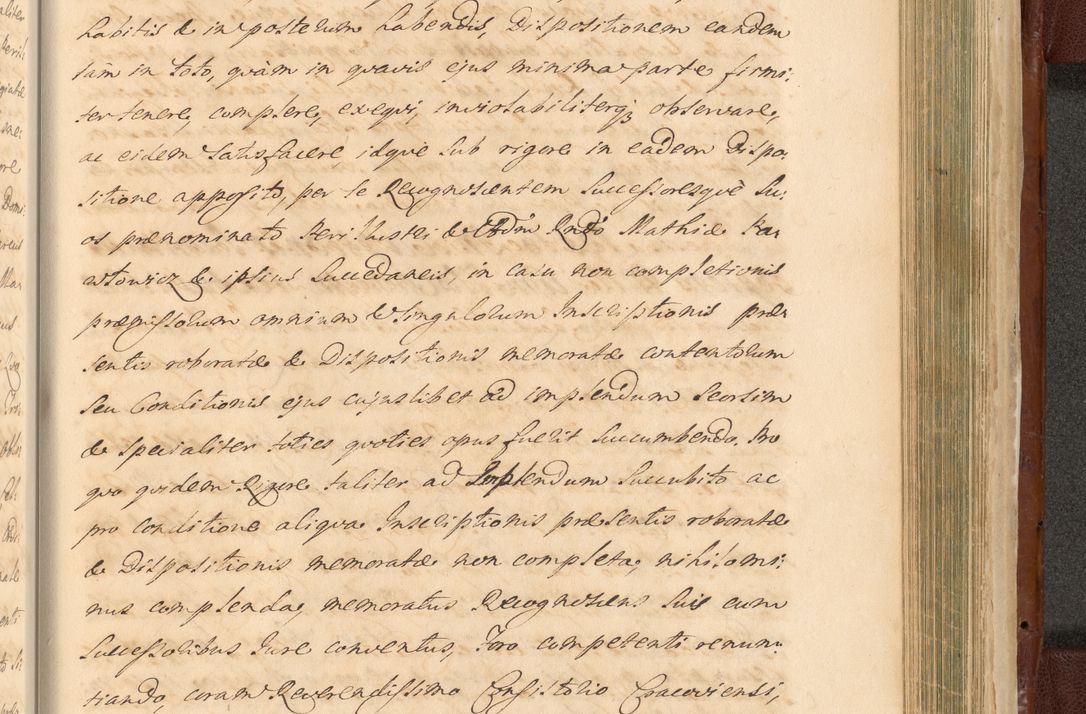 habitis & in posterum habendis, Dispositionem eandem
tam in toto, quàm in quavis ejus minima parte firmi:
ter tenere, complere, exequi, inviolabiliterq; observare,
ac eidem Satisfacere, idque sub rigore in eadem Dispo:
sitione apposito, per se Recognoscentem Successoresquè Su:
os prænominato Perillustri & Adm Rndo Mathiæ Ka:
włowicz & ipsius Succedaneis, in casu non completionis
præmissorum omnium & Singulorum Inscriptionis præ:
sentis roboratæ & Dispositionis memoratæ contentorum
seu Conditionis ejus cujuslibet ad implendum seorsim
& specialiter toties quoties opus fuerit succumbendo, Pro
quo quidem Rigore taliter ad Implendum Succubito ac
pro conditione aliqua Inscriptionis præsentis roboratæ
& Dispositionis memoratæ non completa, nihilomi:
nus complenda, memoratus Recognoscens Suis cum
Successoribus Jure conventus, Foro competenti renun:
tiando, coram Reverendissimo Consistorio Cracoviensi,